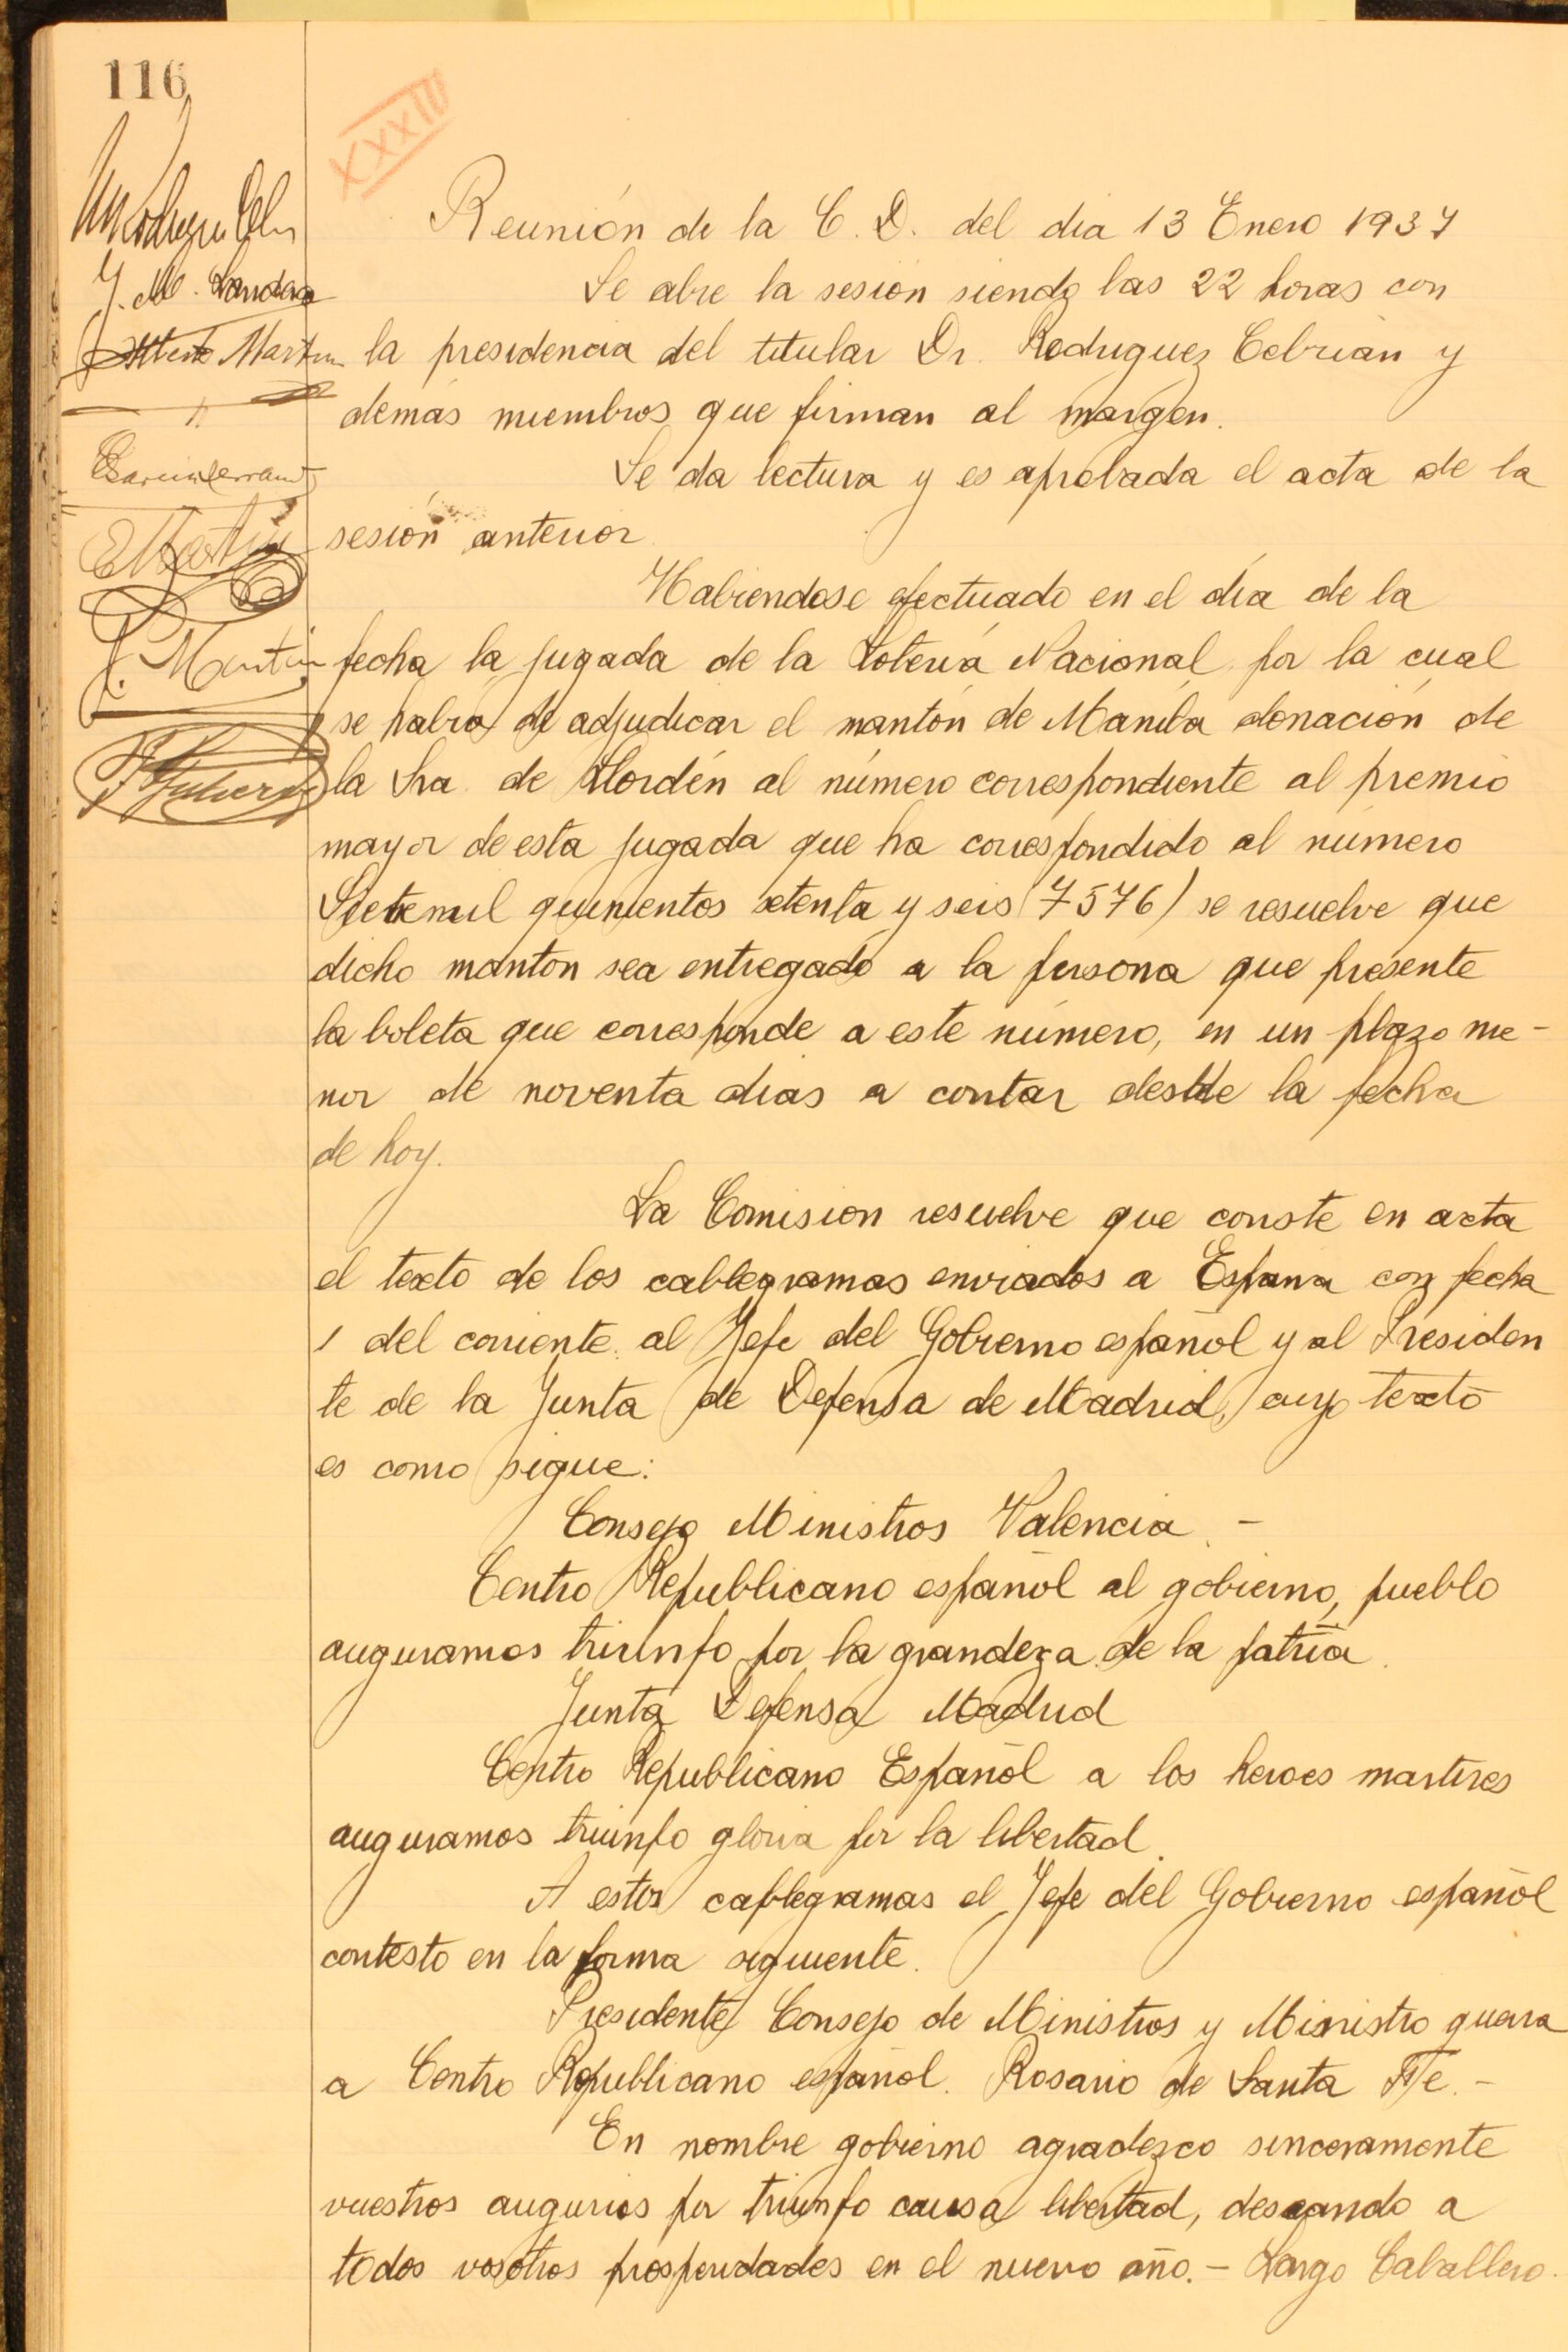 116
XXXII
J. M. Landa
Martin
Reunión de la C. D. del dia 13 Enero 1937
Se abre la sesión siendo las 22 horas con
la presidencia del titular Dr. Rodriguez Cebrian y
demás miembros que firman al margen.
Se da lectura y es aprobada el acta de la
sesión anterior
E Martin
Habiendose efectuado en el día de la
J. Martin
fecha la jugada de la Lotería Nacional por la cual
se habrá de adjudicar el mantón de Manila donación de
la Sra. de Llordén al número correspondiente al premio
mayor de esta jugada que ha correspondido al número
Sietemil quinientos setenta y seis (7576) se resuelve que
dicho mantón sea entregado a la persona que presente
la boleta que corresponde a este número, en un plazo me-
nor de noventa dias a contar desde la fecha
de hoy.
La Comision resuelve que conste en acta
el texto de los cablegramas enviados a España con fecha
1 del corriente. al Jefe del Gobierno español y al Presiden
te de la Junta de Defensa de Madrid, cuyo texto
es como sigue:
Consejo Ministros Valencia. -
Centro Republicano español al gobierno, pueblo
auguramos triunfo por la grandeza de la patria.
Junta Defensa Madrid
Centro Republicano Español a los heroes martires
auguramos triunfo gloria por la libertad.
A estos cablegramas el Jefe del Gobierno español
contesto en la forma siguiente.
Presidente Consejo de Ministros y Ministro guerra
a Centro Republicano español. Rosario de Santa Fe. -
En nombre gobierno agradezco sinceramente
vuestros augurios por triunfo causa libertad, deseando a
todos vosotros prosperidades en el nuevo año. - Largo Caballero.